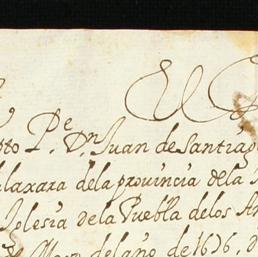 pto P.e D.n Juan de Santia
laxara dela provincia dela
Iglesia de la Puebla delos An
del año de 1676, d